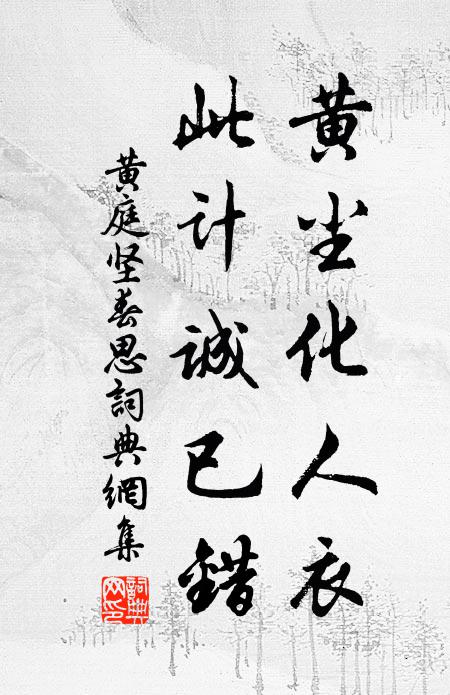 黄尘化人衣
此计诚已错
黄庭坚春思詞典網集
詞典
网印